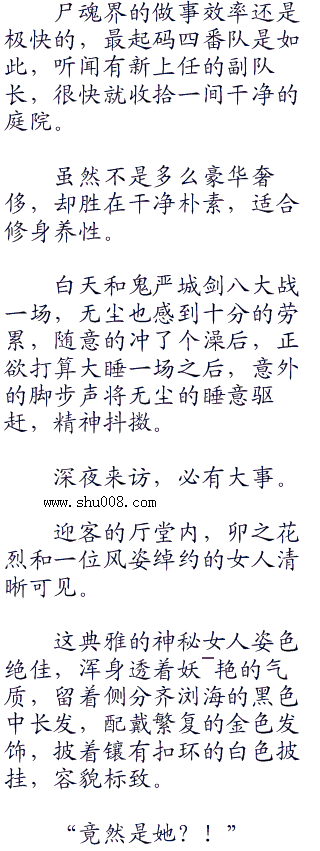 尸魂界的做事效率还是
极快的，最起码四番队是如
此，听闻有新上任的副队
长，很快就收拾一间干净的
庭院。
虽然不是多么豪华奢
侈，却胜在干净朴素，适合
修身养性。
白天和鬼严城剑八大战
一场，无尘也感到十分的劳
累，随意的冲了个澡后，正
欲打算大睡一场之后，意外
的脚步声将无尘的睡意驱
赶，精神抖擞。
深夜来访，必有大事。
www.shu008.com
迎客的厅堂内，卯之花
烈和一位风姿绰约的女人清
晰可见。
这典雅的神秘女人姿色
绝佳，浑身透着妖艳的气
质，留着侧分齐浏海的黑色
中长发，配戴繁复的金色发
饰，披着镶有扣环的白色披
挂，容貌标致。
“竟然是她？！”